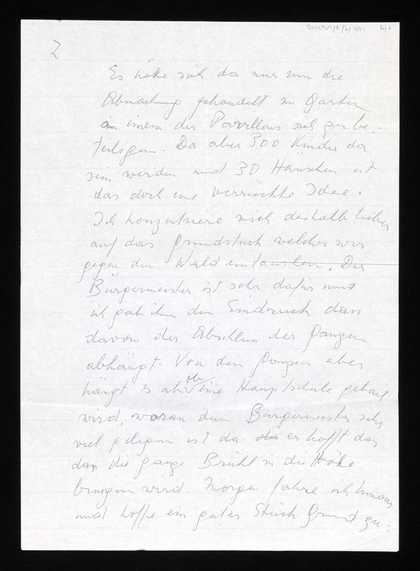 2
Es hätte sich da nur um die
Abmachung gehandelt im Garten
an einem der Pavillons sich zu be-
teiligen. Da aber 300 Kinder da
sein werden und 30 Häuschen ist
das doch eine verrückte Idee.
Ich konzentriere mich deshalb lieber
auf das Grundstück welches wir
gegen den Wald eintauschen. Der
Bürgermeister ist sehr dafür und
ich gab ihm den Eindruck dass
davon der Abschluss des Ganzen
abhängt. Von dem Ganzen aber
hängt es ab ob eine Hauptschule gebaut
wird, woran dem Bürgermeister sehr
viel gelegen ist da er hofft dass
dann die ganze in die Höhe
wird. Morgen fahre ich hinaus
und hoffe ein gutes Stück Grund zu